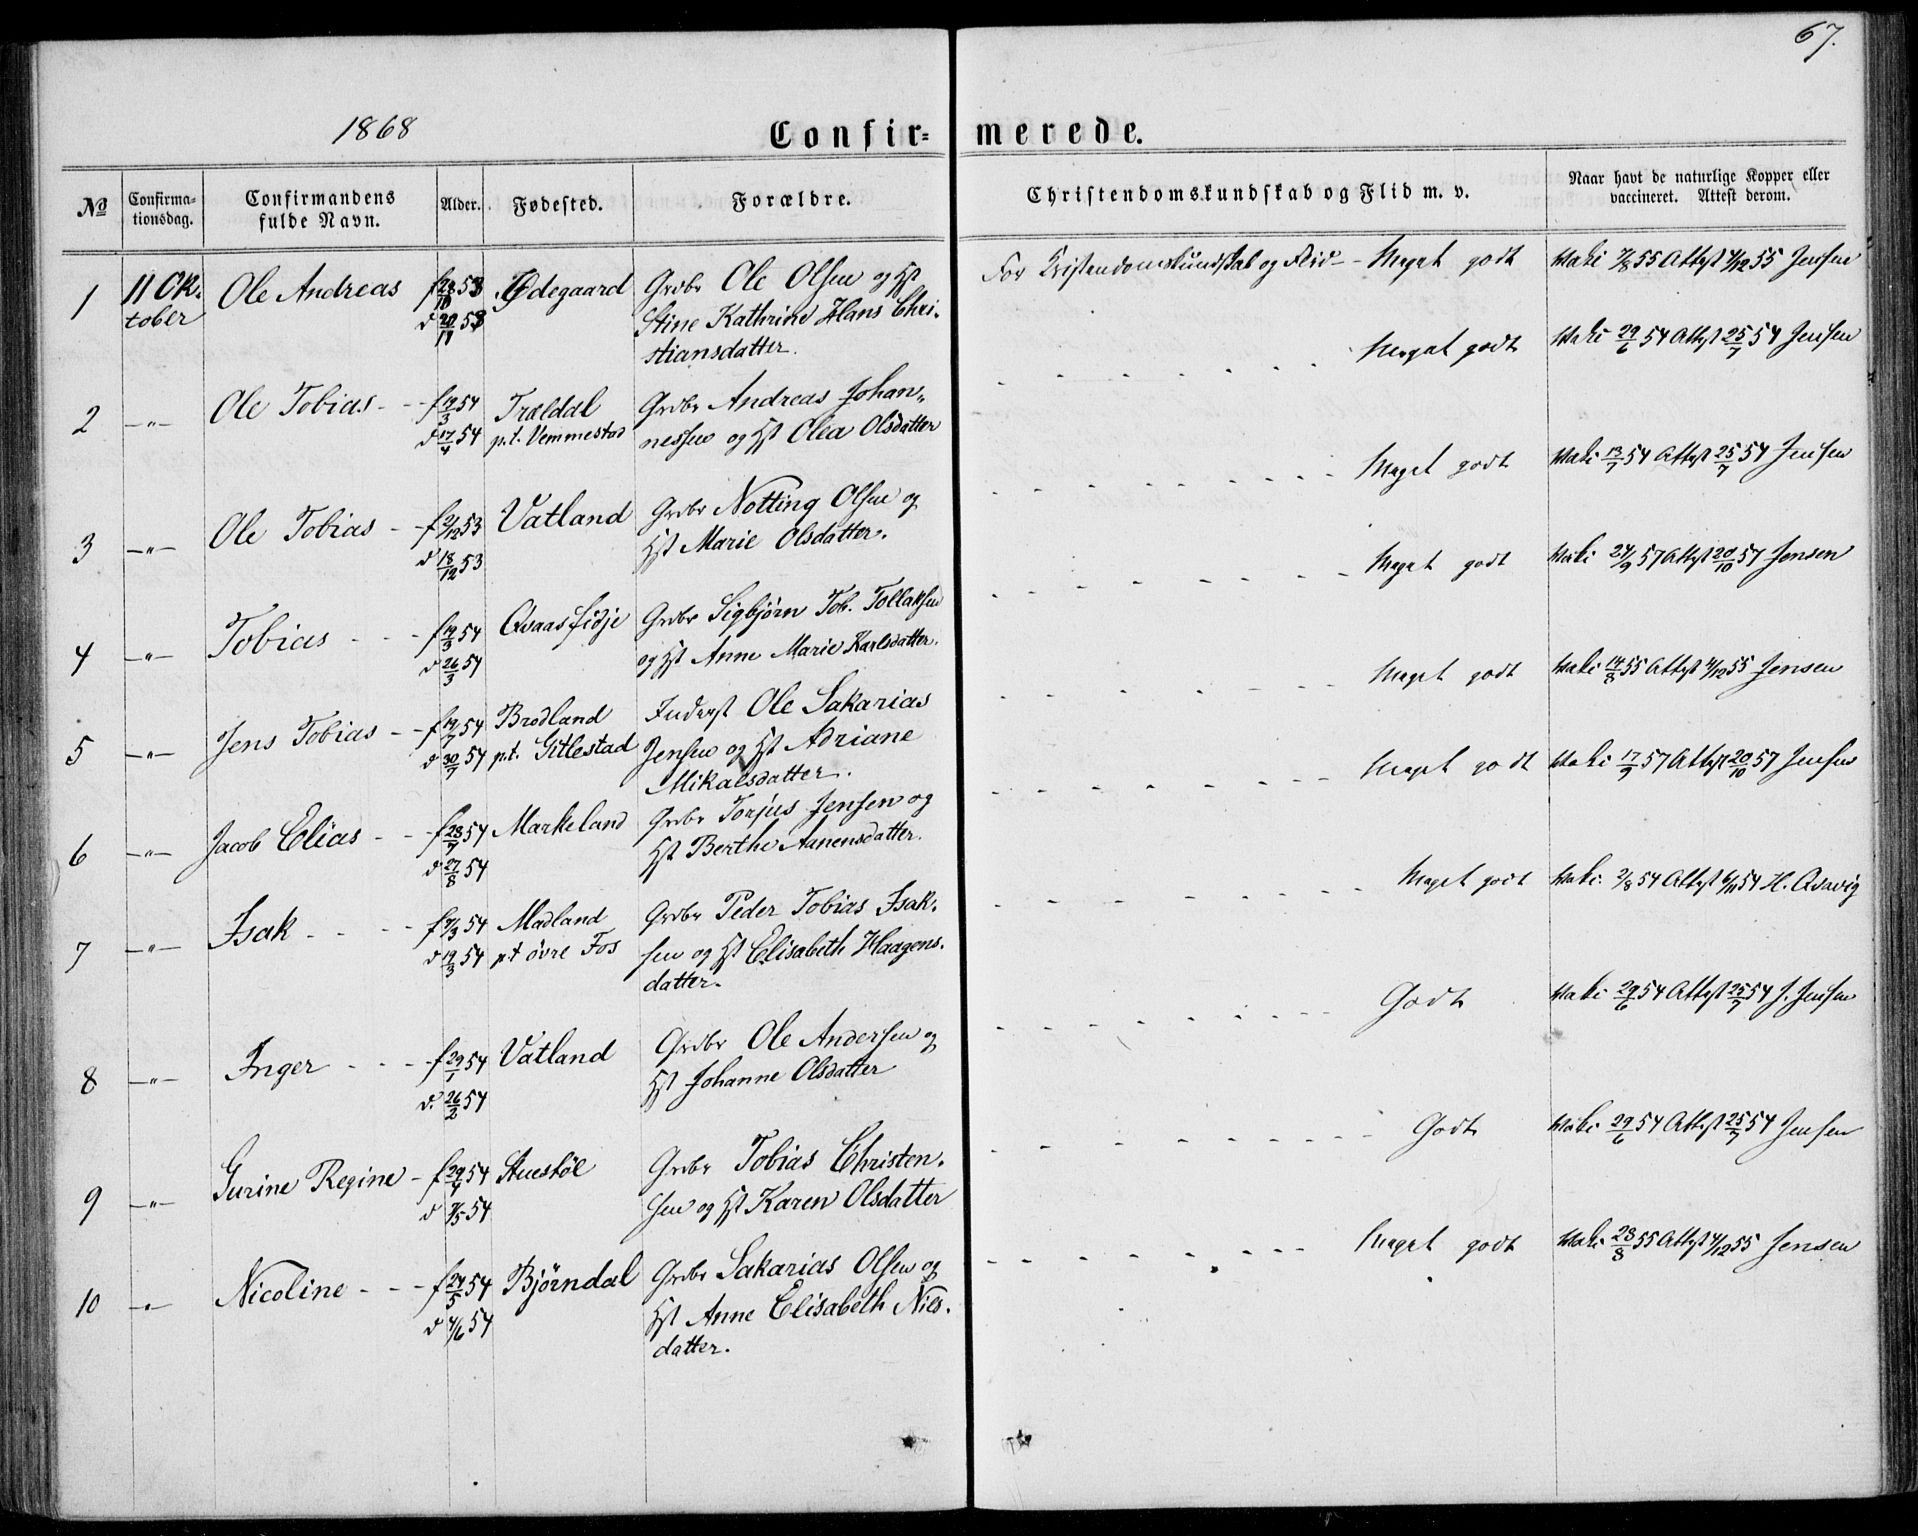 67.
1868
Confir= merede.
No
Confirma-
tionsdag.
Confirmandens
fulde Navn.
Alder.
Fødested.
Forældre.
Christendomskundskab og Flid m. v.
Naar havt de naturlige Kopper eller
vaccineret. Attest derom.
1 11 Ok- Ole Andreas f 28/10 53 Ødegaard Grdbr Ole Olsen og Hst For Kristendomskundskab og Flid - Meget godt Vaki 7/8 55 Attest 4/12 55 Jensen
tober d 20/11 53 Stine Kathrine Hans Chri-
stiansdatter.
2 -"- Ole Tobias f 19/3 54 Trældal Grdbr Andreas Johan- Meget godt Vaki 29/6 54 Attest 25/7 54 Jensen
d 17/4 54 p.t. Vemmestad nessen og Hst Olea Olsdatter
3 -"- Ole Tobias f 2/12 53 Vatland Grdbr Notting Olsen og Meget godt Vaki 13/7 54 Attest 25/7 54 Jensen
d 18/12 53 Hst Marie Olsdatter.
4 -"- Tobias f 19/3 54 Qvaasfidje Grdbr Sigbjørn Tob. Tollaksen Meget godt Vaki 24/9 57 Attest 20/10 57 Jensen
d 26/3 54 og Hst Anne Marie Karlsdatter.
5 -"- Jens Tobias f 19/7 54 Brodland Inderst Ole Sakarias Meget godt Vaki 14/8 55 Attest 4/12 55 Jensen
d 30/7 54 p.t. Gitlestad Jensen og Hst Adriane
Mikalsdatter.
6 -"- Jacob Elias f 28/7 54 Markeland Grdbr Torjus Jensen og Meget godt Vaki 17/9 57 Attest 20/10 57 Jensen
d 27/8 54 Hst Berthe Aanensdatter.
7 -"- Isak f 9/3 54 Madland Grdbr Peder Tobias Isak- Meget godt Vaki 2/8 54 Attest 6/11 54 H.
d 19/3 54 p.t øvre Fos sen og Hst Elisabeth Haagens-
datter.
8 -"- Inger f 29/1 54 Vatland Grdbr Ole Andersen og Godt Vaki 29/6 54 Attest 25/7 54 J. Jensen
d. 26/2 54 Hst Johanne Olsdatter
9 -"- Gurine Regine f 29/4 54 Stuestøl Grdbr Tobias Christen- Godt Vaki 29/6 54 Attest 25/7 54 Jensen
d 7/5 54 sen og Hst Karen Olsdatter
10 -"- Nicoline f 24/5 54 Bjørndal Grdbr Sakarias Olsen og Meget godt Vaki 23/8 55 Attest 4/12 55 Jensen
d 4/6 54 Hst Anne Elisabeth Nils-
datter.